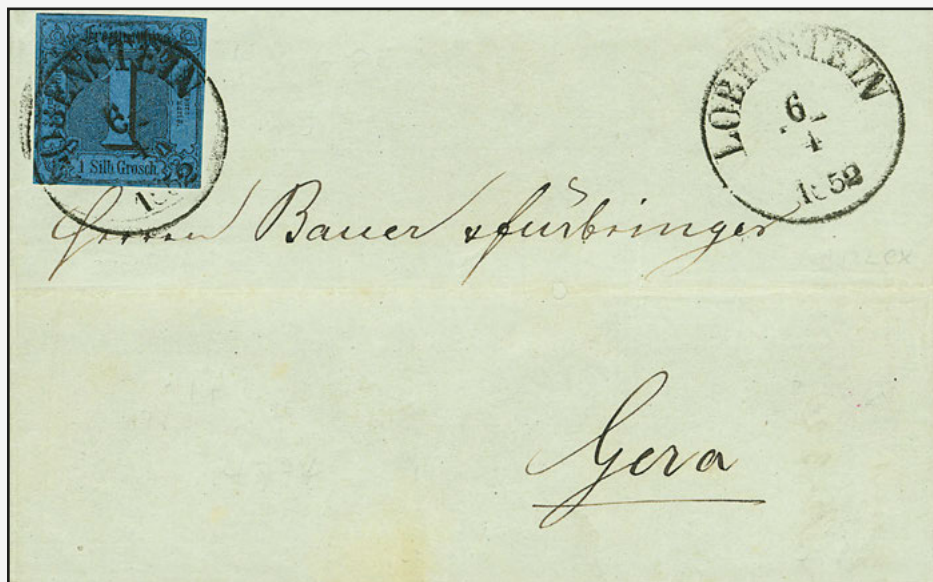 Freimarke
LOBENSTEIN
6
4
1
1 Silb. Grosch.
LOBENSTEIN
6
4
1852
Herren Bauer & Fürbringer
Gera